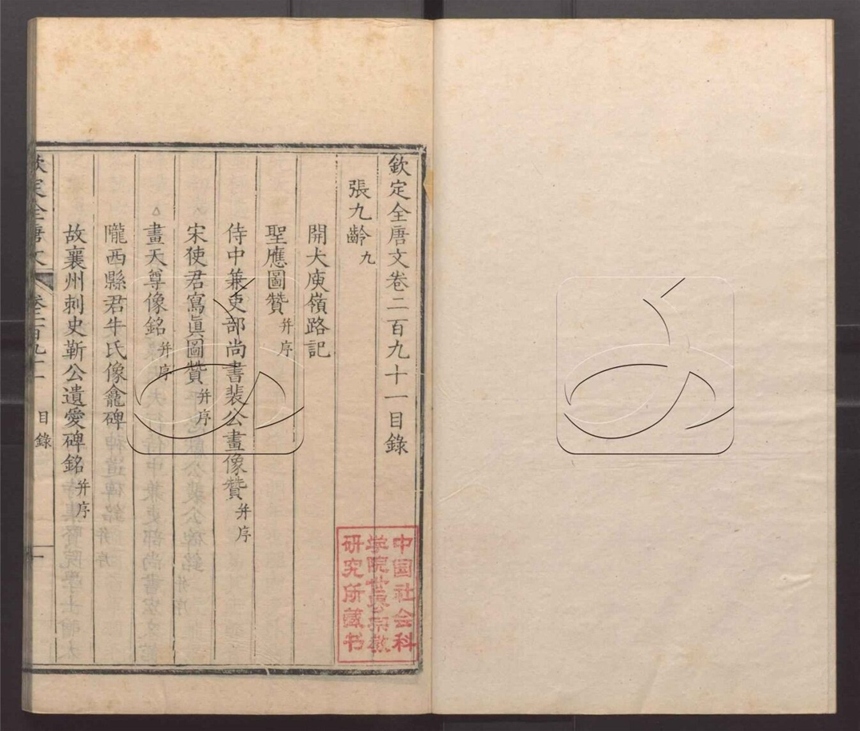 欽定全唐文卷二百九十一目錄
張九齡九
開大庾嶺路記
聖應圖贊并序
侍中兼吏部尚書裴公畫像贊并序
宋使君寫眞圖贊并序
畫天尊像銘并序
隴西縣君牛氏像龕碑
故襄州刺史靳公遺愛碑銘并序
欽定全唐文 卷二百九十一 目錄 一
中国社会科
学院世界宗教
研究所藏书